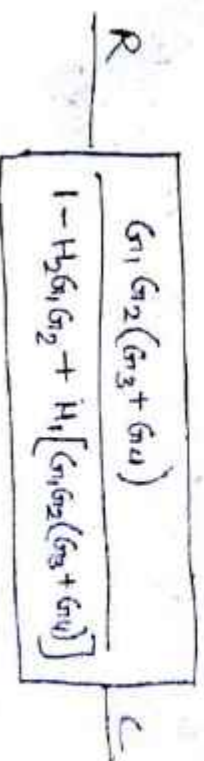 R
G1 G2(G3+G4)
1-H2G1G2 + H1[G1G2(G3+G4)]
C